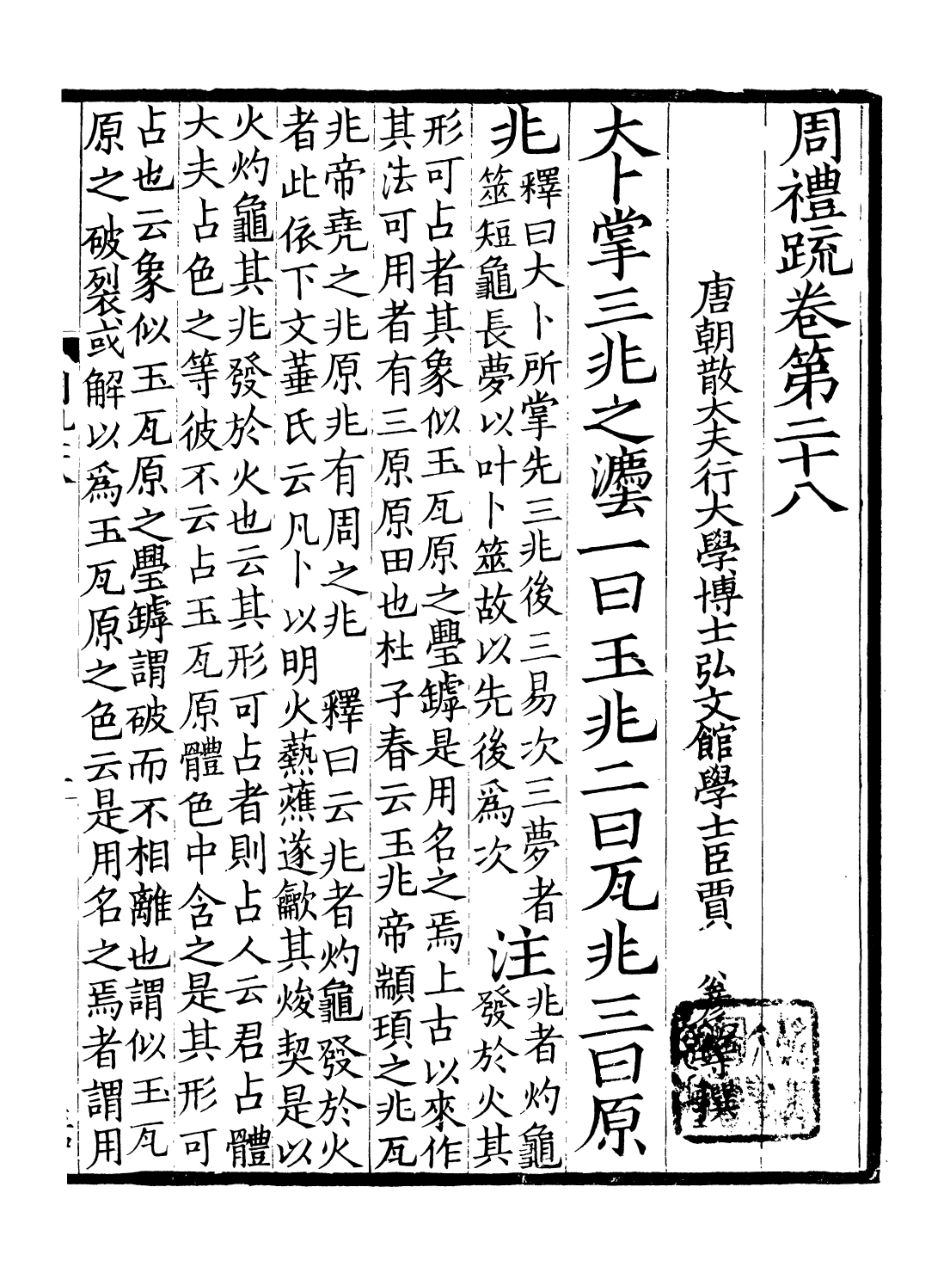 周禮䟽卷第二十八
唐朝散大夫行大學博士弘文館學士臣賈 等撰
大卜掌三兆之灋一曰玉兆二曰瓦兆三曰原
兆釋曰大卜所掌先三兆後三易次三夢者
筮短龜長夢以叶卜筮故以先後爲次
注兆者灼龜
發於火其
形可占者其象似玉瓦原之璺鏬是用名之焉上古以來作
其法可用者有三原原田也杜子春云玉兆帝顓頊之兆瓦
兆帝堯之兆原兆有周之兆 釋曰云兆者灼龜發於火
者此依下文菙氏云凡卜以明火爇燋遂龡其焌契是以
火灼龜其兆發於火也云其形可占者則占人云君占體
大夫占色之等彼不云占玉瓦原體色中含之是其形可
占也云象似玉瓦原之璺鏬謂破而不相離也謂似玉瓦
原之破裂或解以爲玉瓦原之色云是用名之焉者謂用